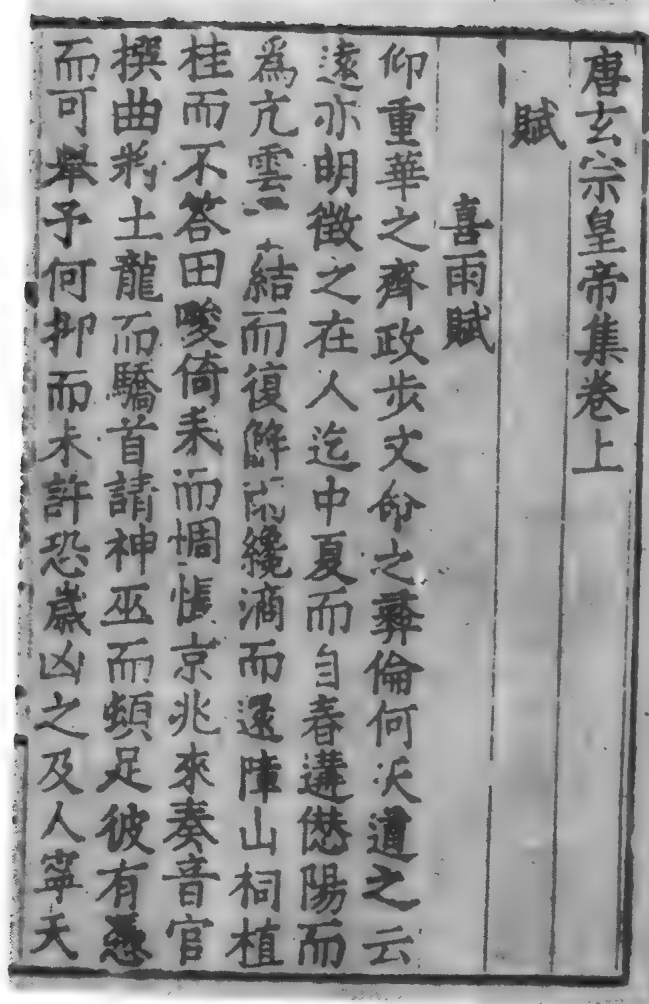 唐玄宗皇帝集卷上
賦
喜雨賦
仰重華之齊政步文命之彞倫何天道之云
遠亦明徵之在人迄中夏而自春遘愆陽而
爲亢雲 結而復解雨纔滴而還障山祠植
桂而不答田畯倚耒而惆悵京兆來奏音官
撰曲刿土龍而驕首請神巫而頓足彼有慾
而可舉予何抑而未許恐歲凶之及人寧天